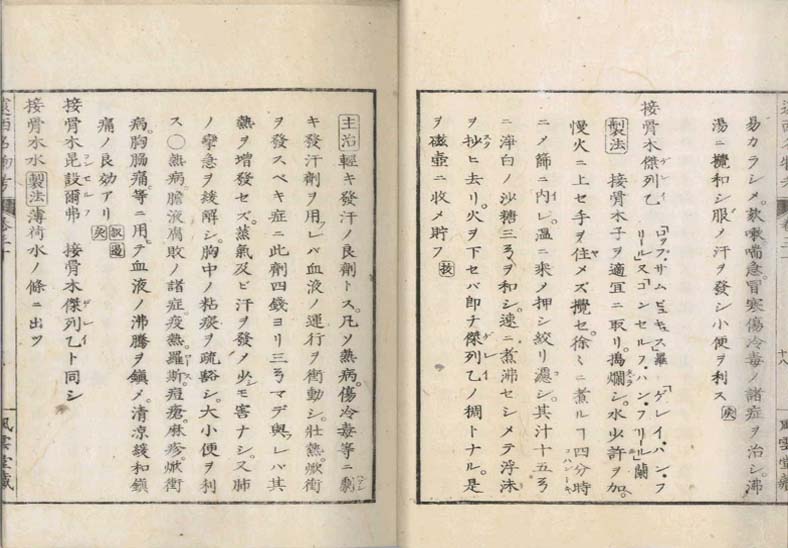 易カラシメ。欬嗽喘急冒寒傷冷毒ノ諸症ヲ治シ。沸
湯ニ攪和シ服メ汗ヲ發シ小便ヲ利ス
接骨木傑列乙 「ロッフ・サムビュキス」羅 「ゲレイ・ハン・フ
リールス」「コンセルフ・ハン・フリール」蘭
製法 接骨木子ヲ適宜ニ取リ。搗爛シ。水少許ヲ加。
慢火ニ上セ手ヲ住メズ攪セ。徐ミニ煮ルヿ四分時
ニメ篩ニ内レ。温ニ乘メ押シ絞リ濾シ。其汁十五弓
ニ淨白ノ沙糖三弓ヲ和シ。速ニ煮沸セシメテ浮沫
ヲ抄ヒ去リ。火ヲ下セバ即チ傑列乙ノ稠トナル。是
ヲ磁壷ニ收メ貯フ
十八
風雲堂藏
主治 輕キ發汗ノ良劑トス。凡ソ熱病。傷冷毒等ニ劇
キ發汗劑ヲ用フレバ血液ノ運行ヲ衝動シ。壯熱。焮衝
ヲ發スベキ症ニ此劑四錢ヨリ三弓マデ與フレバ其
熱ヲ增發セズ。蒸氣及ビ汗ヲ發メ少シモ害ナシ。又肺
ノ攣急ヲ緩解シ。胸中ノ粘痰ヲ疏豁シ。大小便ヲ利
ス〇熱病。膽液腐敗ノ諸症。疫熱。羅斯。痘瘡。麻疹。焮衝
病。胸脇痛。等ニ用テ血液ノ沸騰ヲ鎭メ。清凉緩和鎭
痛ノ良効アリ
接骨木昆設爾弗 接骨木傑列乙ト同シ
接骨木水 製法 薄荷水ノ條ニ出ツ
遠西名物考
風雲堂藏